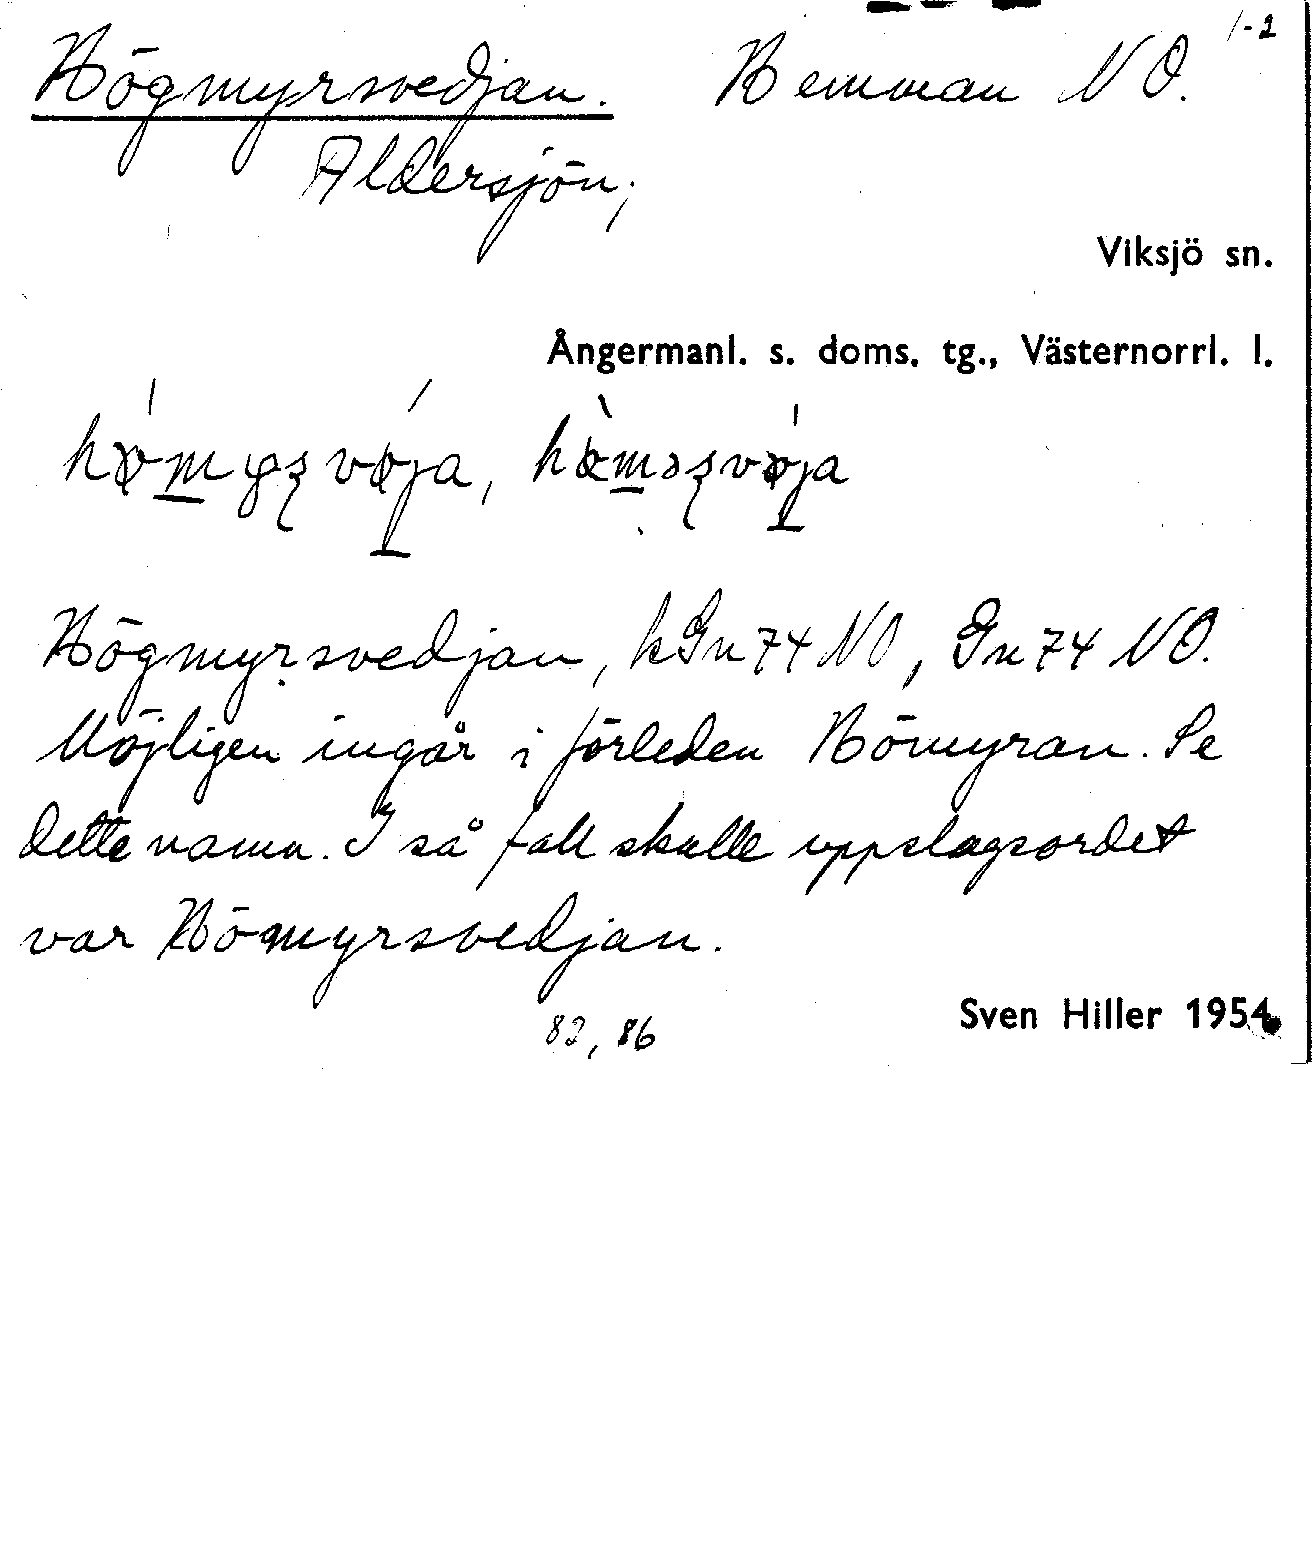 1-2
Högmyrsvedjan. Hemman NO.
Aldersjön,
Viksjö sn.
Ångermanl. s. doms. tg., Västernorrl. l.
Högmyrsvedjan, kGn74NO, Gn74NO.
Möjligen ingår i förleden Hömyran. Se
detta namn. I så fall skulle uppslagsordet
var Hömyrsvedjan.
Sven Hiller 1954.
82, 86